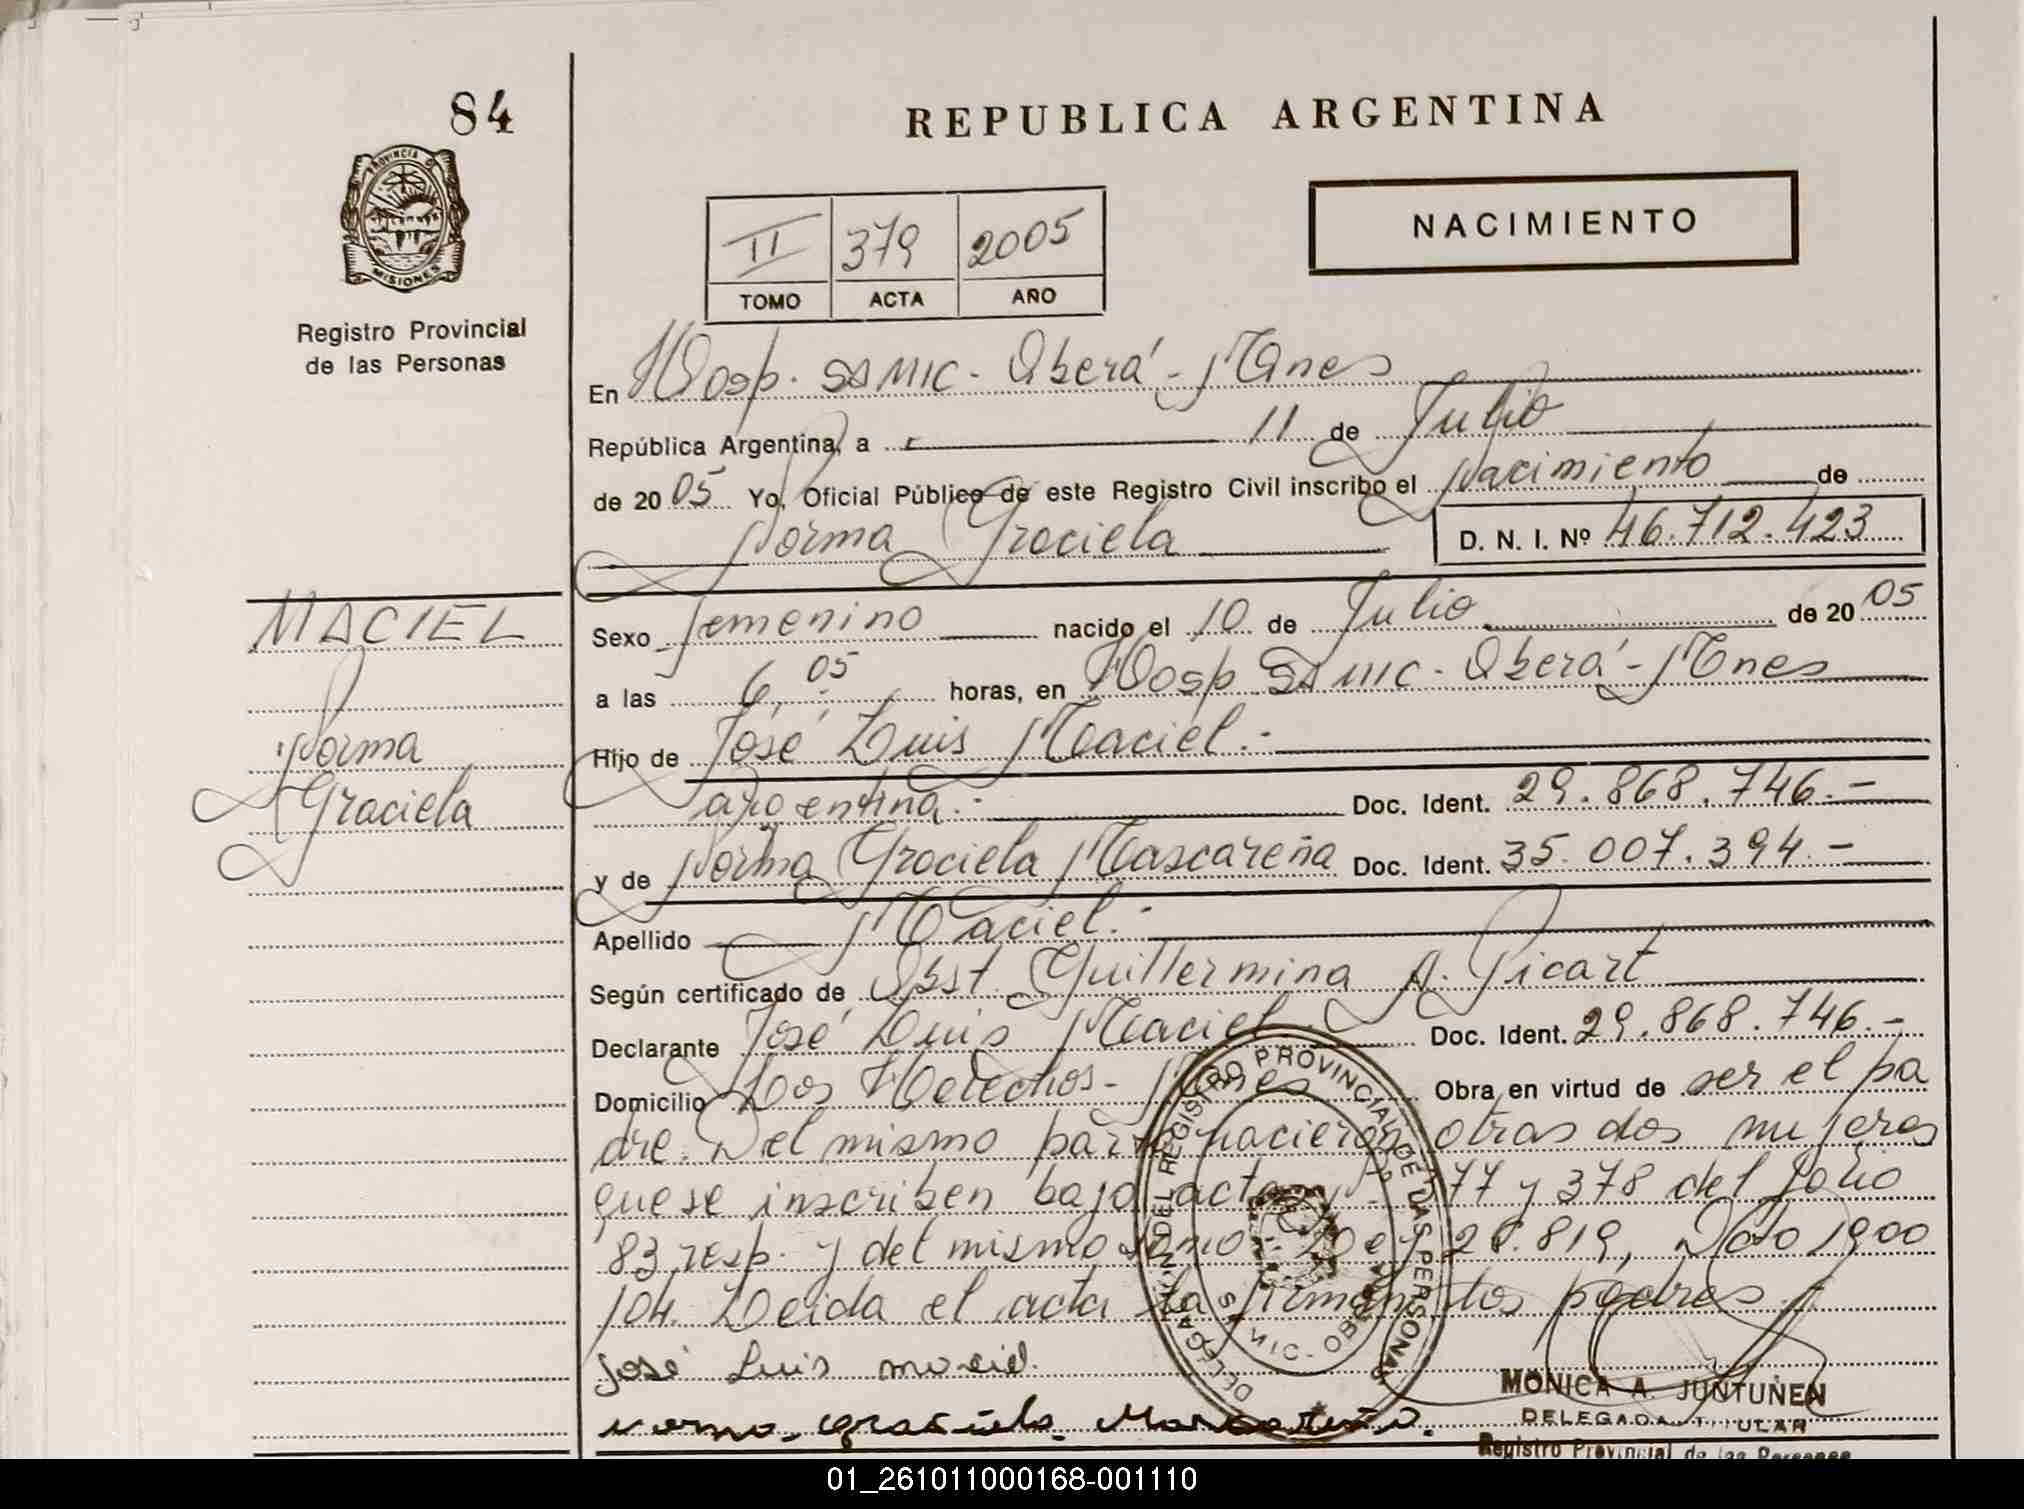 84
PROVINCIA DE
MISIONES
Registro Provincial
de las Personas
REPUBLICA ARGENTINA
NACIMIENTO
II 379 2005
TOMO ACTA AÑO
En Hosp. SAMIC - Oberá - Mnes
República Argentina, a 11 de Julio
de 2005 Yo, Oficial Público de este Registro Civil inscribo el Nacimiento de
Norma Graciela D. N. I. Nº 46.712.423
MACIEL
Norma
Graciela
Sexo femenino nacido el 10 de Julio de 2005
a las 6,05 horas, en Hosp SAMIC - Oberá - Mnes
Hijo de José Luis Maciel.-
argentina.- Doc. Ident. 29.868.746.-
y de Norma Graciela Mascareña Doc. Ident. 35.007.394.-
Apellido Maciel.-
Según certificado de Obst. Guillermina A. Picart
Declarante José Luis Maciel. Doc. Ident. 29.868.746.-
Domicilio Los Helechos - Mnes Obra en virtud de ser el pa
dre. Del mismo parto nacieron otras dos mujeres
que se inscriben bajo actas 377 y 378 del folio
83 resp. y del mismo tomo. Ley 2 .819, Dto 1900
/04. Leida el acta la firman los padres.
José Luis maciel.
norma graciela Mascareña.
DELEGA DEL REGISTRO PROVINCIAL DE LAS PERSONAS
SAMIC - OBERA
MONICA A. JUNTUNEN
DELEGADA TITULAR
Registro Provincial de las Personas
01_261011000168-001110